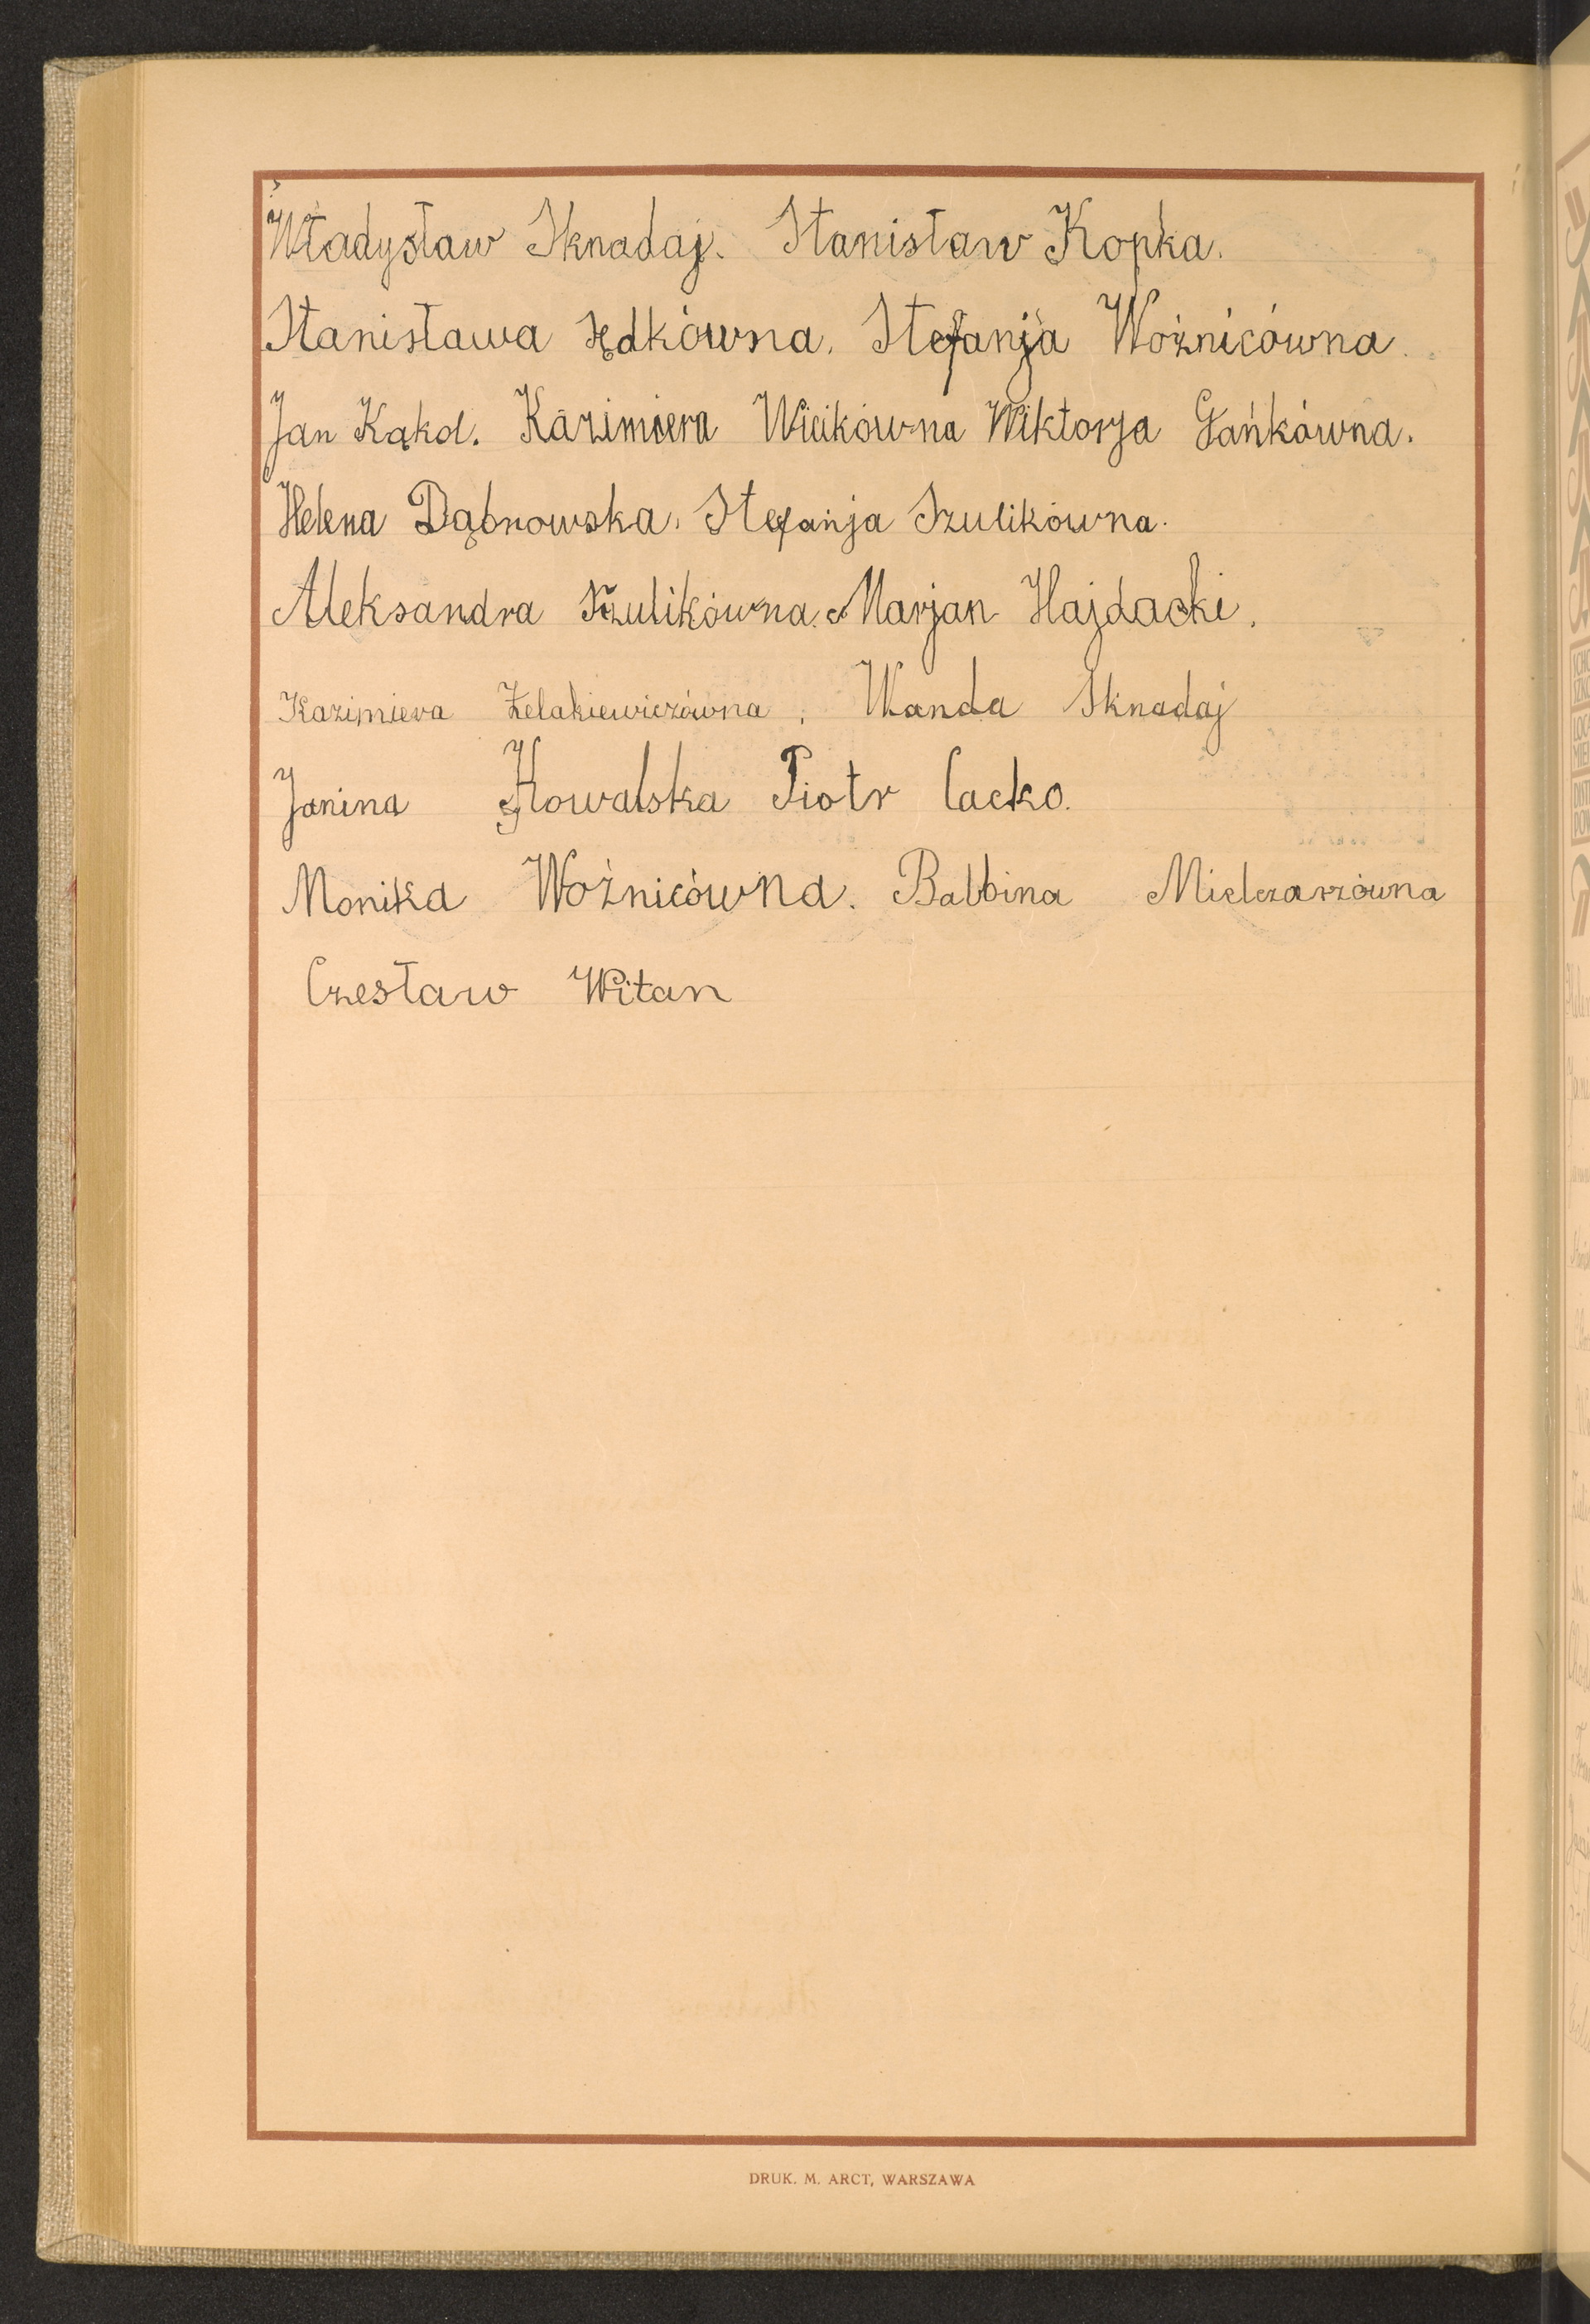 Władysław Sknadaj. Stanisław Kopka.
Stanisława Sędkówna. Stefanja Woźnicówna.
Jan Kąkol. Kazimiera Wicikówna Wiktorja Gańkówna.
Helena Dąbrowska. Stefanja Szulikówna.
Aleksandra Szulikówna. Marjan Hajdacki.
Kazimiera Żelakiewiczówna, Wanda Sknadaj
Janina Kowalska Piotr Cacko.
Monika Woźnicówna. Balbina Mielczarzówna
Czesław Witan
DRUK. M. ARCT, WARSZAWA